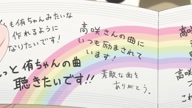 侑ちゃんみたいな
作れるように
なりたいです!
もっと侑ちゃんの曲
聴きたいです!!
高咲さんの曲に
いつも励まされて
います!
素敵な曲を
ありがとう。